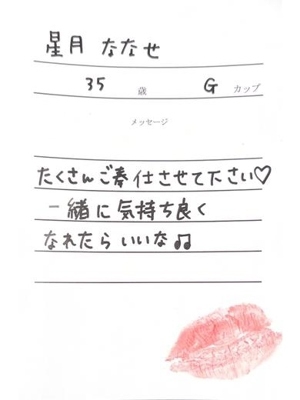 星月 ななせ
35 歳 G カップ
メッセージ
たくさんご奉仕させて下さい♡
一緒に気持ち良く
なれたらいいな♫